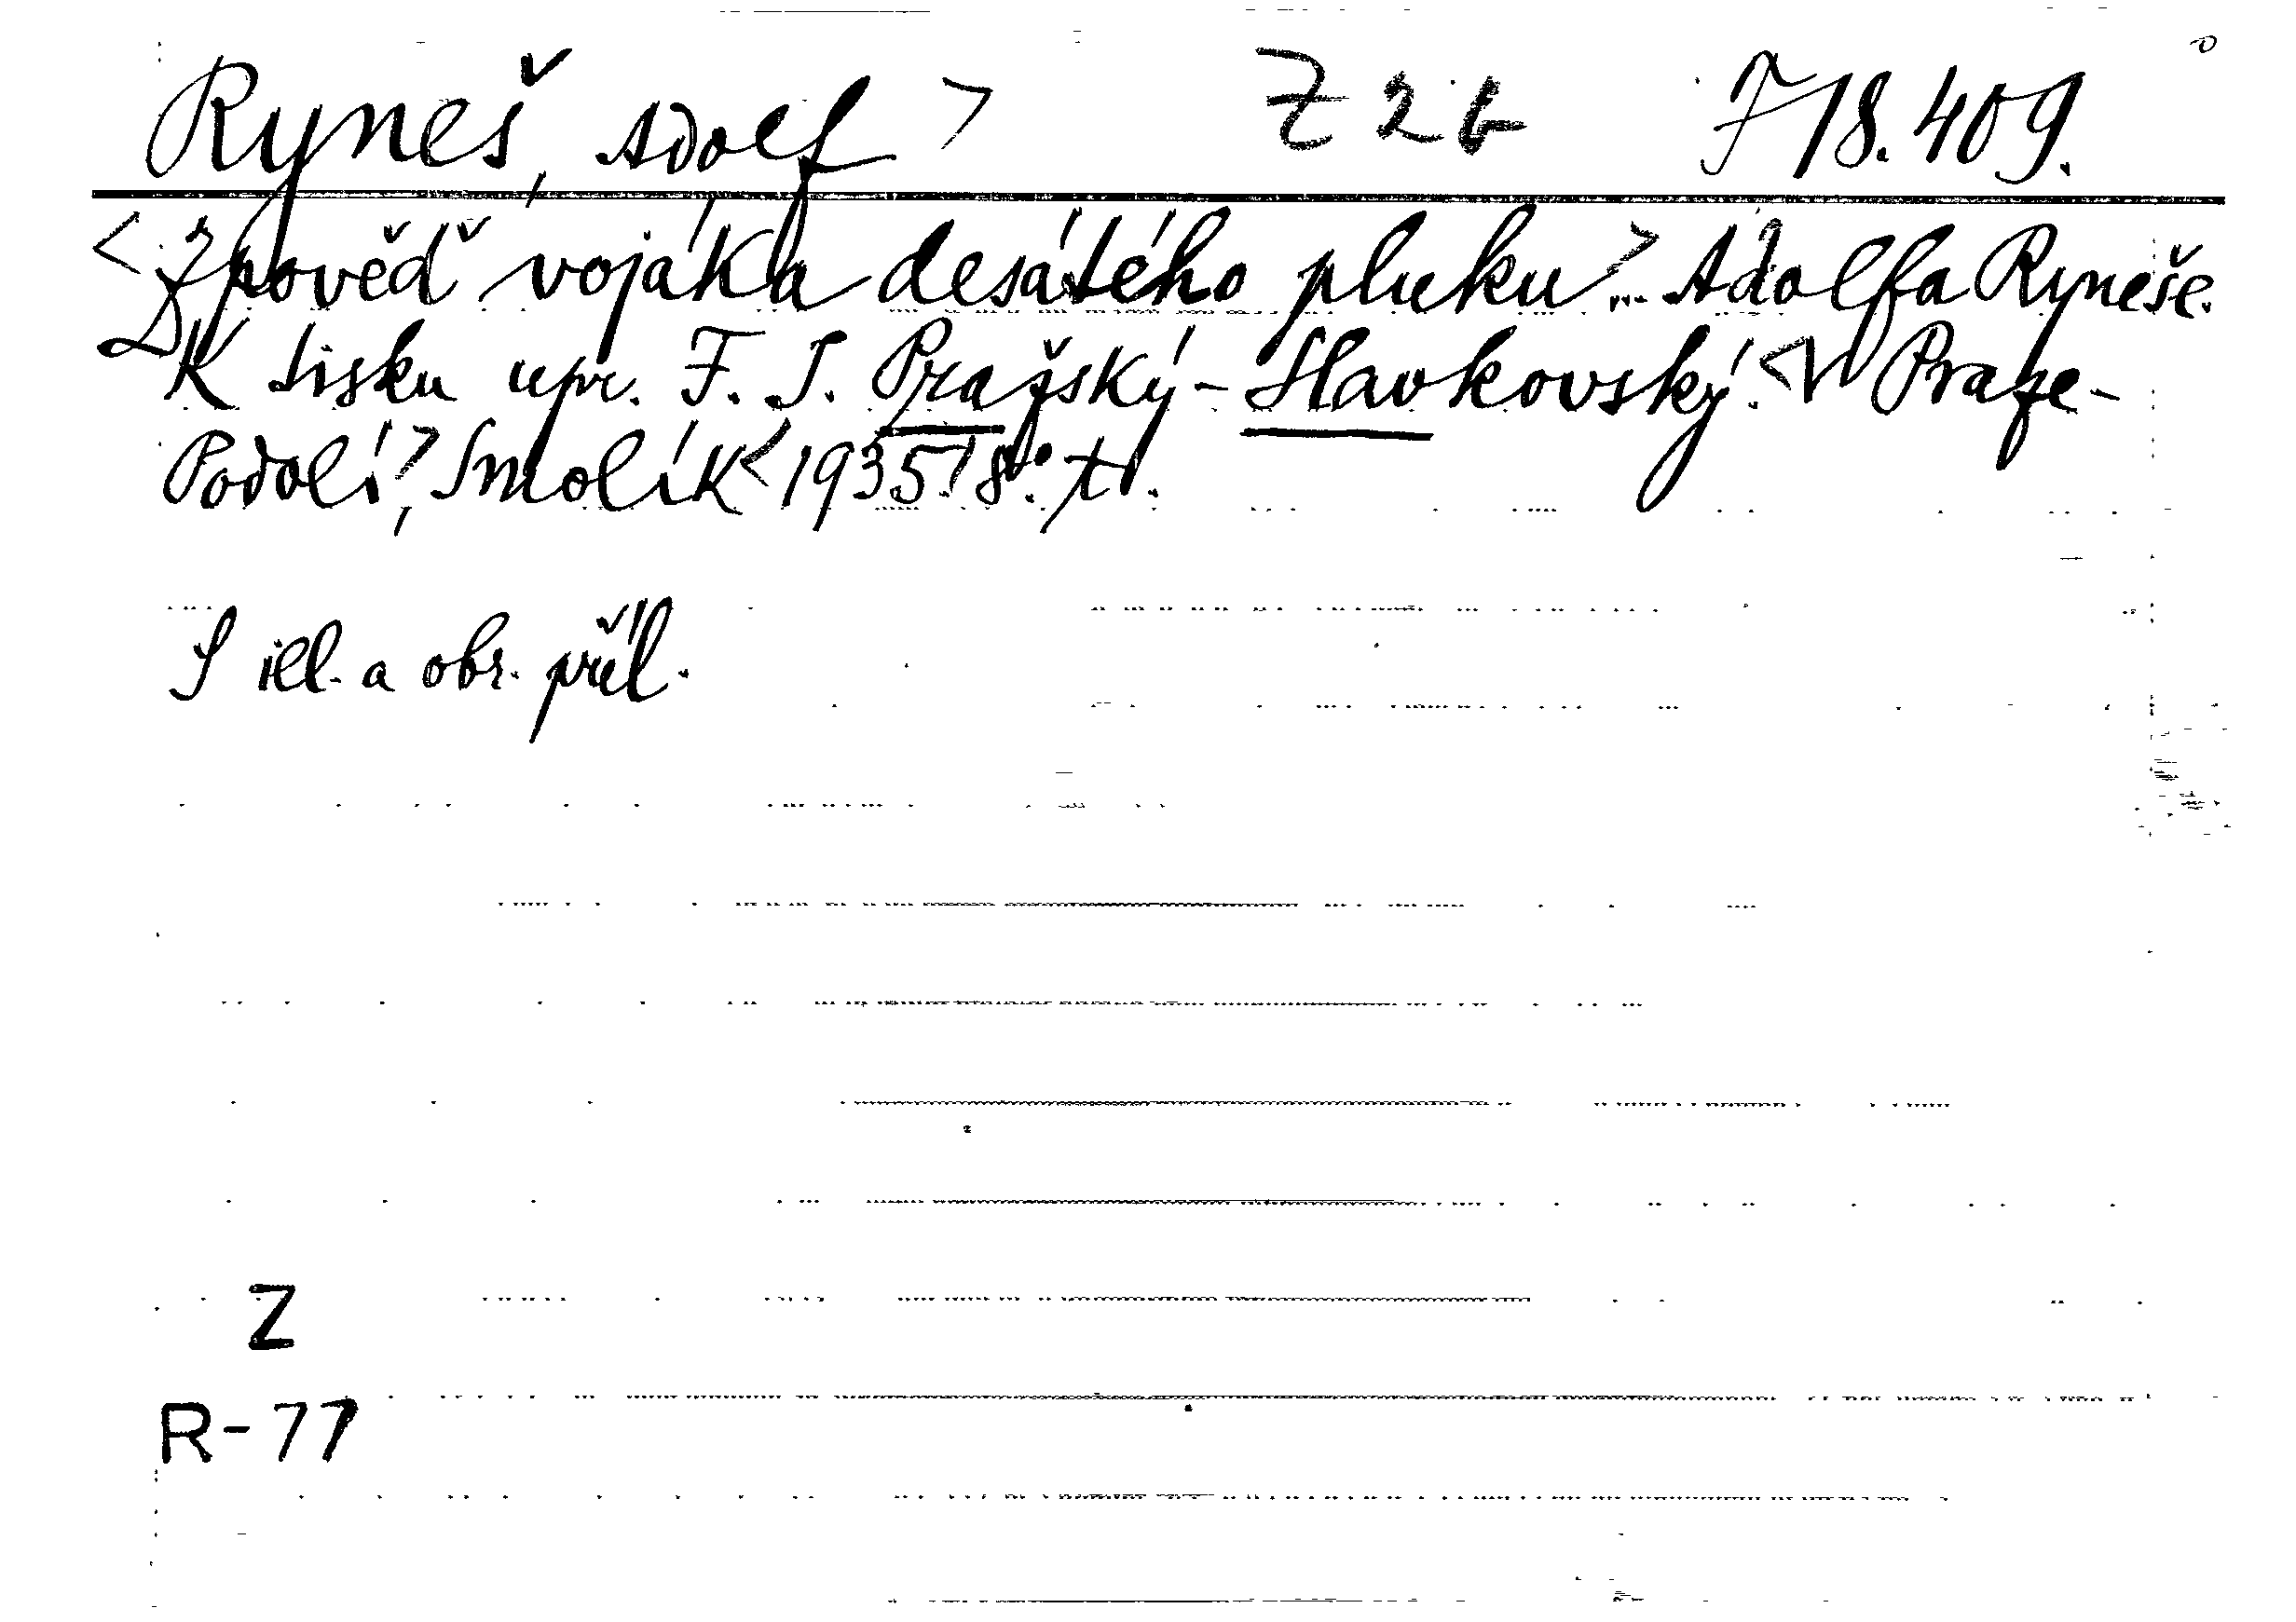 Ryneš, Adolf > Z 2 b F 18.409.
<Zpověď vojáka desátého pluku>... Adolfa Ryneše.
K tisku upr. F. J. Pražský-Slavkovský. <V Praze-
Podolí>, Smolík <1935.> 8°. tt.
S ill. a obr. příl.
Z
R-77